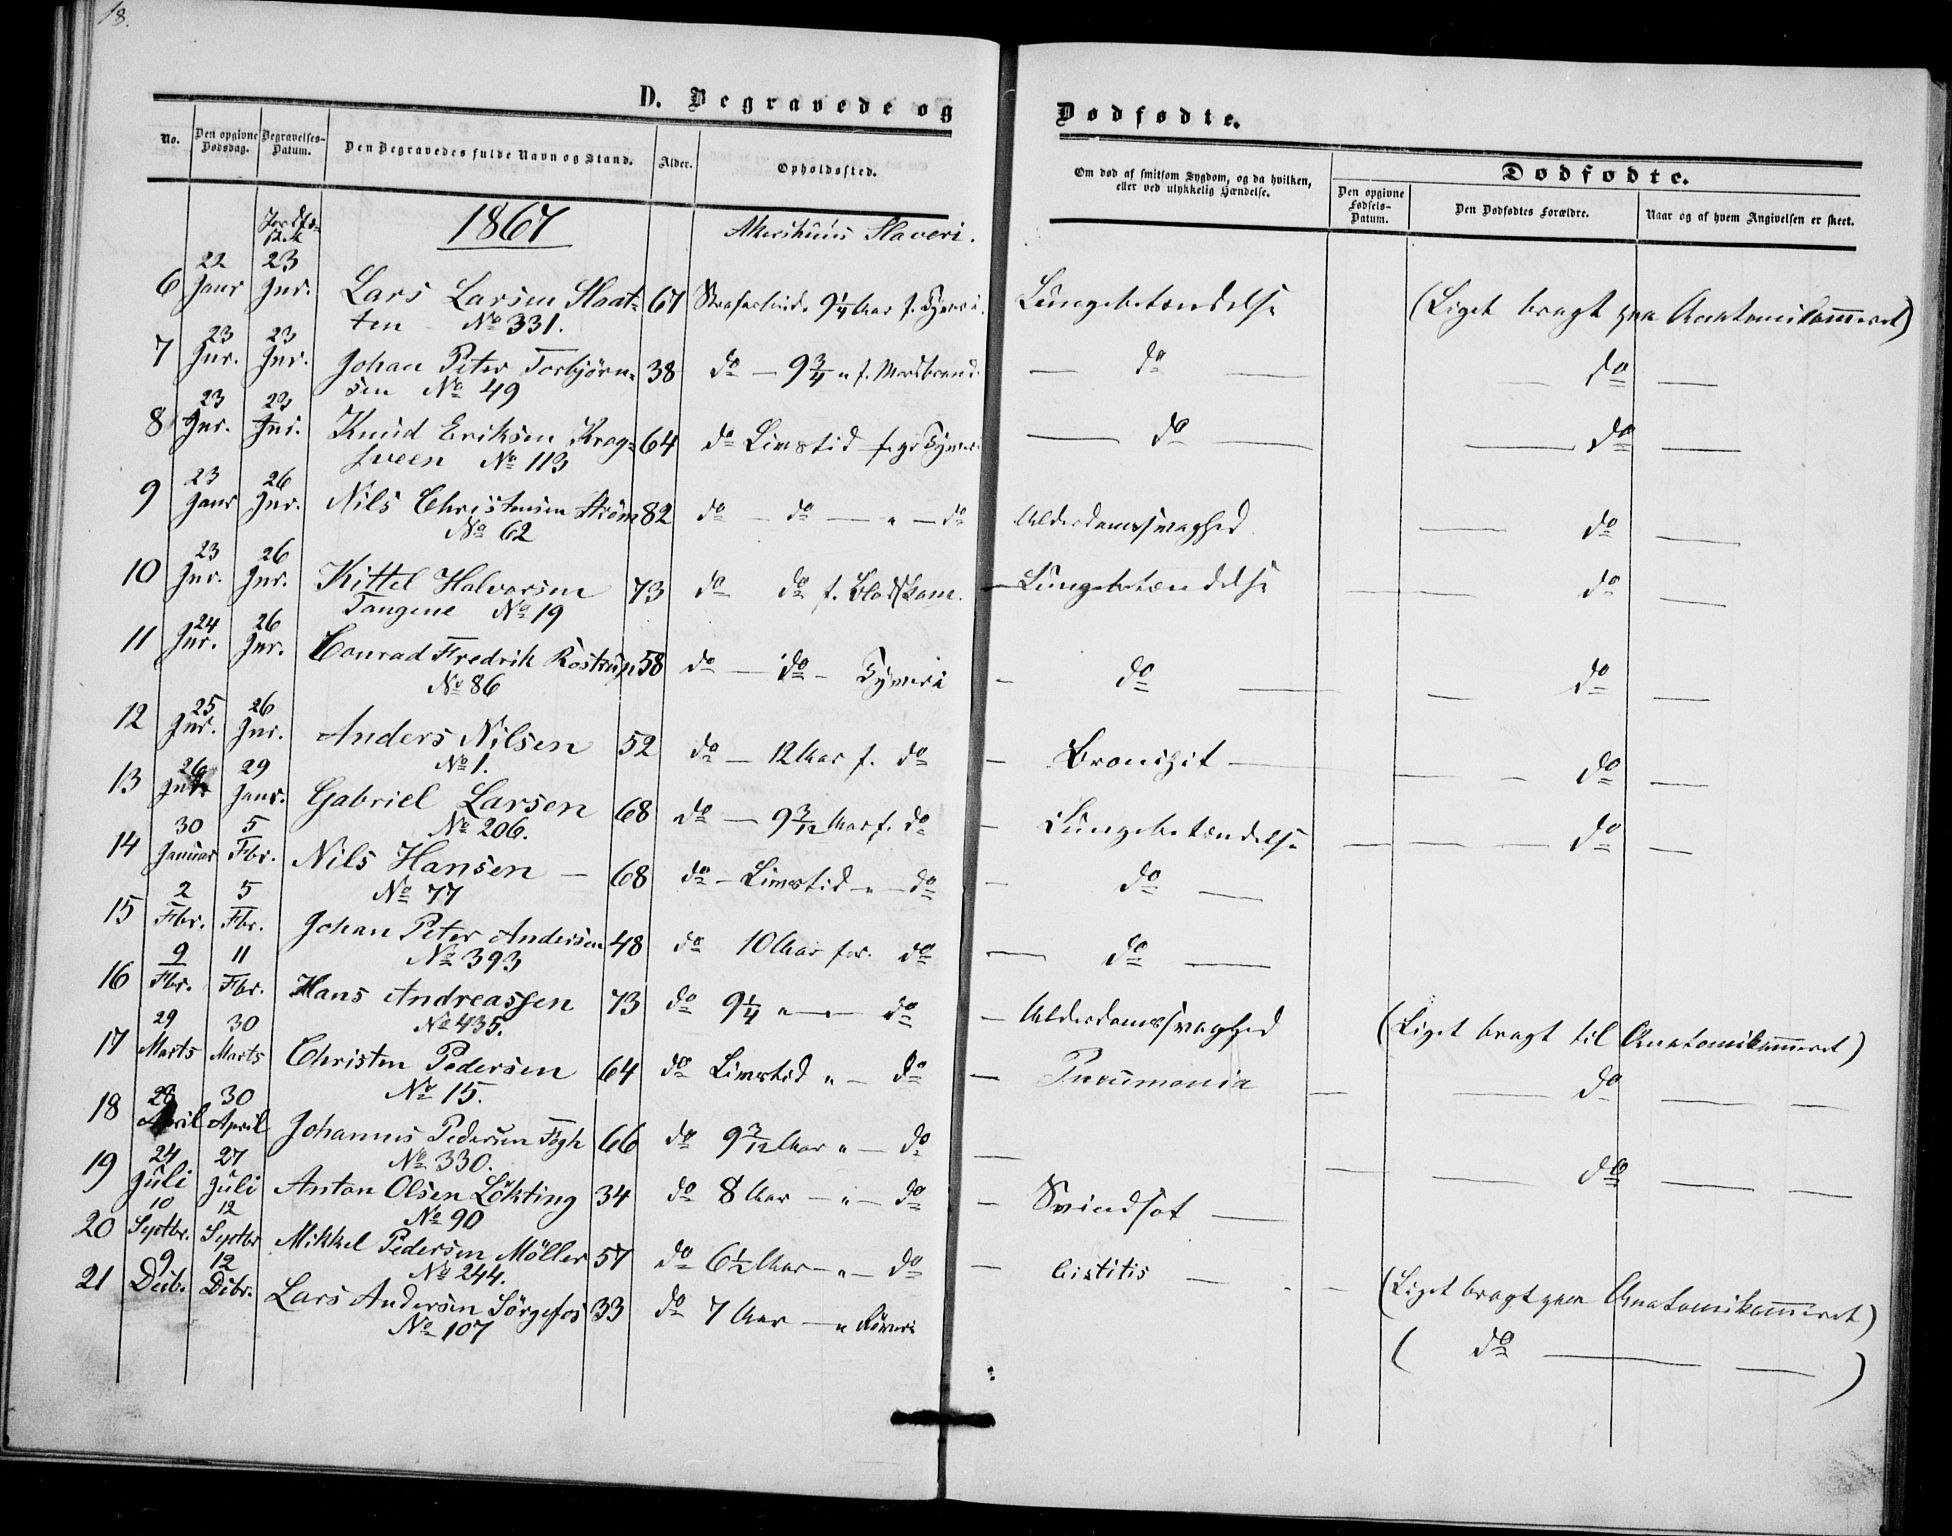 18.
D. Begravede og
Dødfødte.
No.
Den opgivne Dødsdag.
Begravelses-Datum.
Den Begravedes fulde Navn og Stand.
Alder.
Opholdssted.
Om død af smitsom Sygdom, og da hvilken, eller ved ulykkelig Hændelse.
Dødfødte.
Den opgivne Fødsels-Datum.
Den Dødfødtes Forældre.
Naar og af hvem Angivelsen er skeet.
1867 Akershuus Slaveri.
6 22 Janr 23 Jnr. Lars Larsen Slaat- 67 9¼ Aar f. Tyveri. Lungebetændelse (Liget bragt paa Anatomikammeret)
ten No 331.
7 23 Jnr. 23 Jnr. Johan Peter Torbjørn- 38 do — 9¾ " f. Mordbrand. — do — — do —
sen No 49
8 23 Jnr. 23 Jnr. Knud Eriksen Krag- 64 do Livstid f. Tyveri — do — — do —
sveen No 113
9 23 Janr 26 Jnr. Nils Christensen Strøm 82 do — do — " — do Alderdomssvaghed — do —
No 62
10 23 Jnr. 26 Jnr. Kittel Halvorsen 73 do do f. Blodskam. — Lungebetændelse — — do —
Tangene No 19
11 24 Jnr. 26 Jnr. Conrad Fredrik Rostrup 58 do — do — Tyveri — do — — do —
No 86
12 25 Jnr. 26 Jnr. Anders Nilsen 52 do — 12 Aar f. do — Bronchit — — — do —
No 1.
13 26 Jnr. 29 Janr. Gabriel Larsen 68 do — 9 3/12 Aar f. do — Lungebetændelse — — — do —
No 206.
14 30 Januar 5 Fbr. Nils Hansen — 68 do — Livstid — " — do — do —
No 77
15 2 Fbr. 5 Fbr. Johan Peter Andersen 48 do 10 Aar for. do — do —
No 393
16 9 Fbr. 11 Fbr. Hans Andreassen 73 do 9¼ " — " — do — Alderdomssvaghed (Liget bragt til Anatomikammeret)
No 435.
17 29 Marts 30 Marts Christen Pedersen 64 do Livstid " — do — Pneumonia — — do — —
No 15.
18 28 April 30 April Johannes Pedersen 66 do 9 3/12 Aar " do — — — do — —
No 330.
19 24 Juli 27 Juli Anton Olsen Lökting 34 do 8 Aar — " — do — Svindsot —
No 90
20 10 Septbr. 12 Septbr Mikkel Pedersen Möller 57 do 6½ Aar — " — do — Cistitis — (Liget bragt paa Anatomikammeret)
No 244.
21 9 Decb. 12 Dcbr. Lars Andersen Sörgefos 33 do 7 Aar — " Röveri ( do — — )
No 107